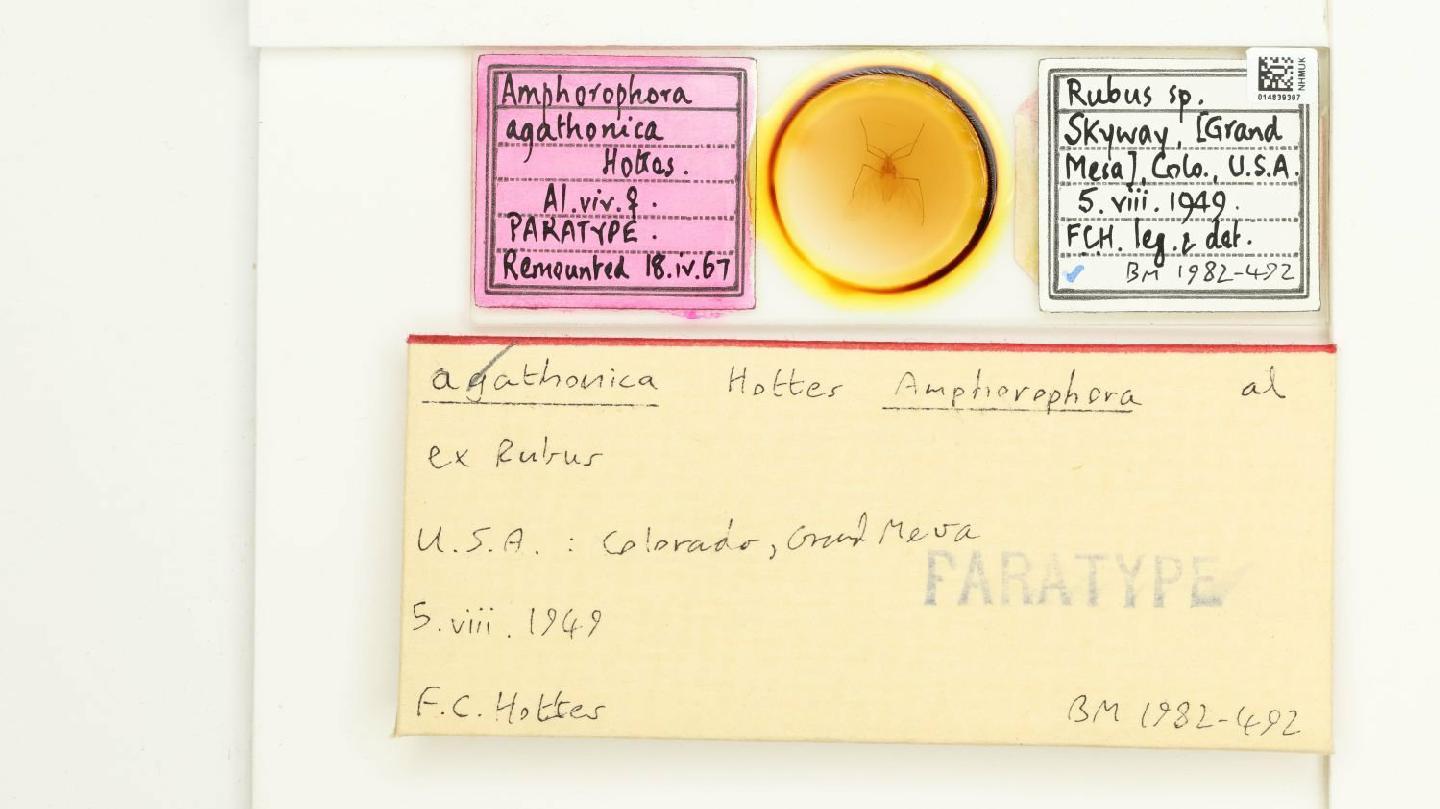 Amphorophora
agathonica
Hottes.
Al. viv. ♀.
PARATYPE.
Remounted 18.iv.67
NHMUK
014839397
Rubus sp.
Skyway, [Grand
Mesa], Colo., U.S.A.
5. viii. 1949.
FCH. leg. & det.
✓ BM 1982-492
agathonica Hottes Amphorophora al
ex Rubus
U.S.A. : Colorado, Grand Mesa
PARATYPE
5. viii. 1949
F.C. Hottes BM 1982-492